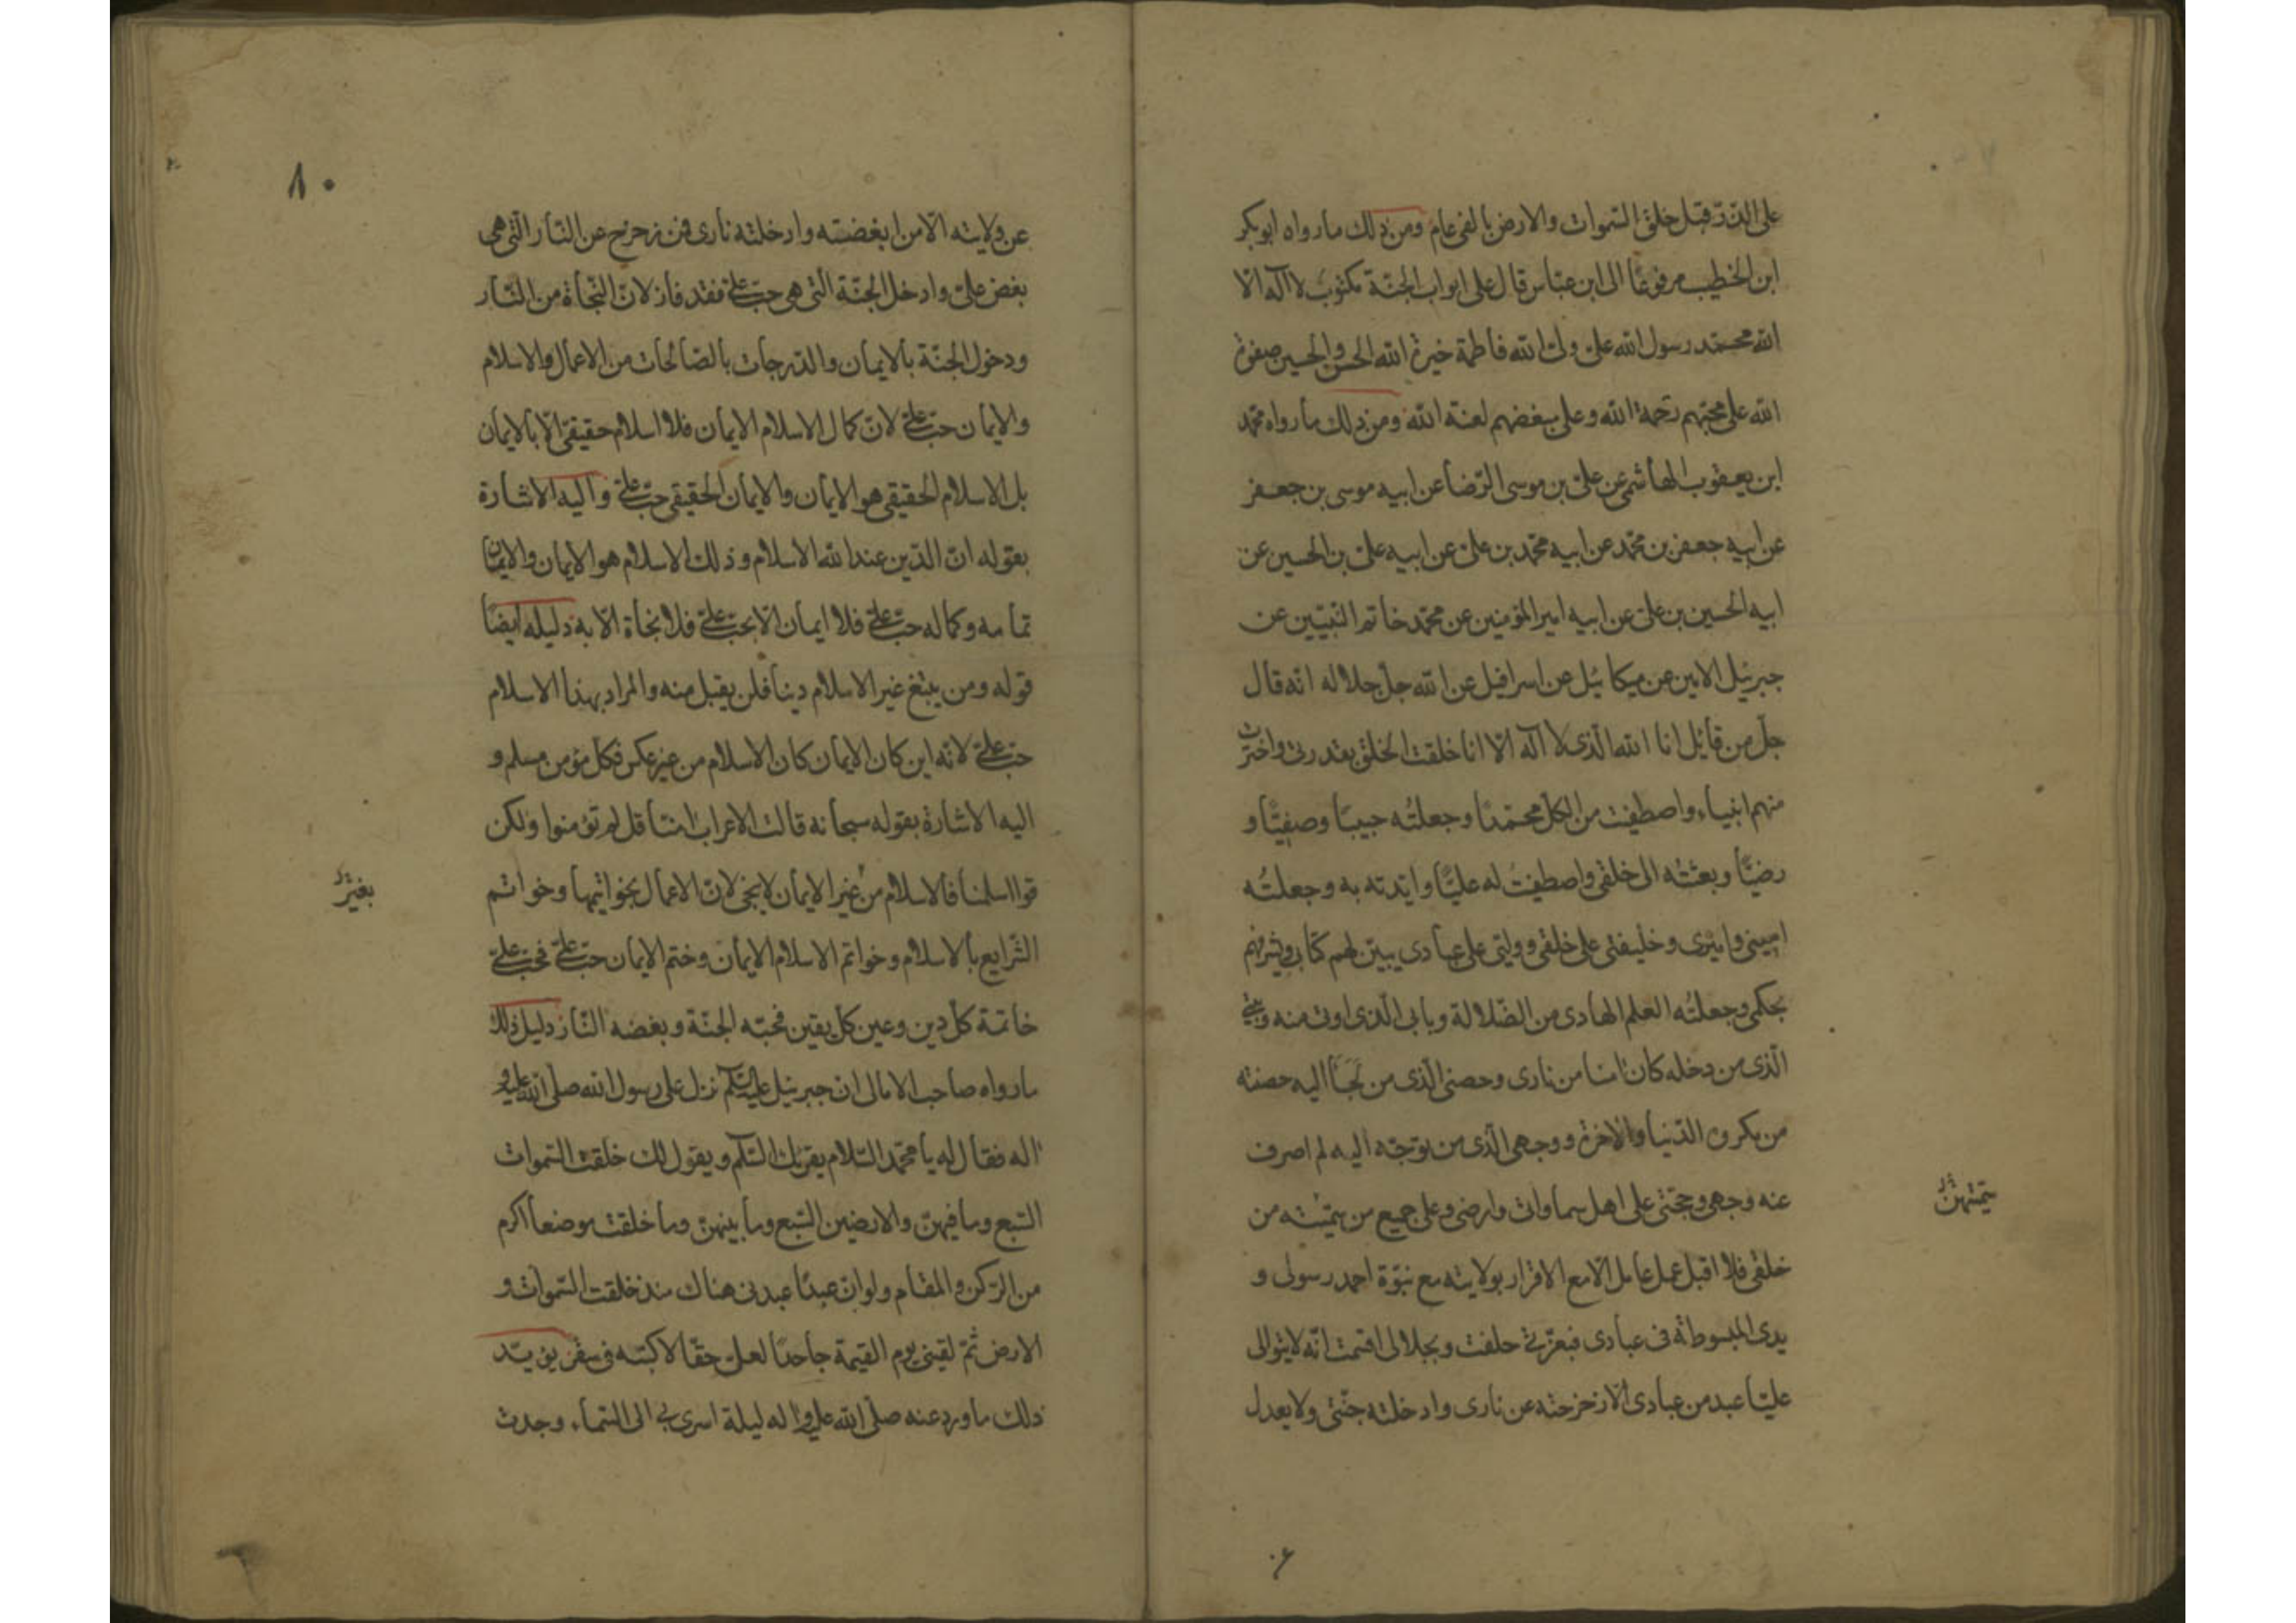 على الذّرّ قبل خلق السّموات والارض بالفى عام ومن ذلك ما رواه ابوبكر
ابن الخطيب مرفوعًا الى ابن عبّاس قال على ابواب الجنّة مكتوب لا اله الّا
الله محمّد رسول الله علىّ ولىّ الله فاطمة خيرة الله الحسن والحسين صفوة
الله على محبّهم رحمة الله وعلى مبغضهم لعنة الله ومن ذلك ما رواه محمّد
ابن يعقوب الهاشمى عن علىّ بن موسى الرّضا عن ابيه موسى بن جعفر
عن ابيه جعفر بن محمّد عن ابيه محمّد بن علىّ عن ابيه علىّ بن الحسين عن
ابيه الحسين بن علىّ عن ابيه امير المؤمنين عن محمّد خاتم النّبيّين عن
جبرئيل الامين عن ميكائيل عن اسرافيل عن الله جلّ جلاله انّه قال
جلّ من قائل انا الله الّذى لا اله الّا انا خلقت الخلق بقدرتى واخترت
منهم انبياء واصطفيت من الكلّ محمّدًا وجعلتُه حبيبًا وصفيًّا و
رضيًّا وبعثتُه الى خلقى واصطفيتُ له عليًّا وايّدته به وجعلتُه
امينى واميرى وخليفتى على خلقى ووليّى على عبادى يبيّن لهم كتابى ويسير فيهم
بحكمى وجعلتُه العلم الهادى من الضّلالة وبابى الّذى اوتى منه وبيتى
الّذى من دخله كان امنا من نارى وحصنى الّذى من لجأ اليه حصنته
من مكروه الدّنيا والاخرة ووجهى الّذى من توجّه اليه لم اصرف
عنه وجهى وحجّتى على اهل سماواتى وارضى وعلى جميع من بينهنّ من
بينهنّ
خلقى فلا اقبل عمل عامل الّا مع الاقرار بولايته مع نبوّة احمد رسولى و
يدى المبسوطة فى عبادى فبعزّتى حلفت وبجلالى اقسمت انّه لا يتوالى
عليّا عبد من عبادى الّا زحزحته عن نارى وادخلته جنّتى ولا يعدل
٨٠
عن ولايته الّا من ابغضته وادخلته نارى فمن زحزح عن النّار الّتى هى
بغض علىّ وادخل الجنّة الّتى هى حبّ علىّ فقد فاز لانّ النّجاة من النّار
ودخول الجنّة بالايمان والدّرجات بالصّالحات من الاعمال والاسلام
والايمان حبّ علىّ لانّ كمال الاسلام الايمان فلا اسلام حقيقىّ الّا بالايمان
بل الاسلام الحقيقى هو الايمان والايمان الحقيقى حبّ علىّ واليه الاشارة
بقوله انّ الدّين عند الله الاسلام وذلك الاسلام هو الايمان والايمان
تمامه وكماله حبّ علىّ فلا ايمان الّا بحبّ علىّ فلا نجاة الّا به دليله ايضًا
قوله ومن يبتغ غير الاسلام دينا فلن يقبل منه والمراد بهذا الاسلام
حبّ علىّ لانّه اين كان الايمان كان الاسلام من غير عكس فكلّ مؤمن مسلم و
اليه الاشارة بقوله سبحانه قالت الاعراب امنّا قل لم تؤمنوا ولكن
قولوا اسلمنا فالاسلام من غير الايمان لا ينجى لانّ الاعمال بخواتيمها وخواتم
بغير
الشّرايع بالاسلام وخواتم الاسلام الايمان وختم الايمان حبّ علىّ فحبّ علىّ
خاتمة كلّ دين وعين كلّ يقين فحبّه الجنّة وبغضه النّار دليل ذلك
ما رواه صاحب الامالى ان جبرئيل عليه السّلام نزل على رسول الله صلّى الله عليه و
اله فقال له يا محمّد السّلام يقرئك السّلام ويقول لك خلقت السّموات
السّبع وما فيهنّ والارضين السّبع وما بينهنّ وما خلقت موضعا اكرم
من الرّكن والمقام ولو انّ عبدًا عبدنى هناك منذ خلقت السّموات و
الارض ثمّ لقينى يوم القيمة جاحدًا لعلىّ حقّا لاكببته فى سقر يؤيّد
ذلك ما ورد عنه صلّى الله عليه واله ليلة اسرى بى الى السّماء وجدت